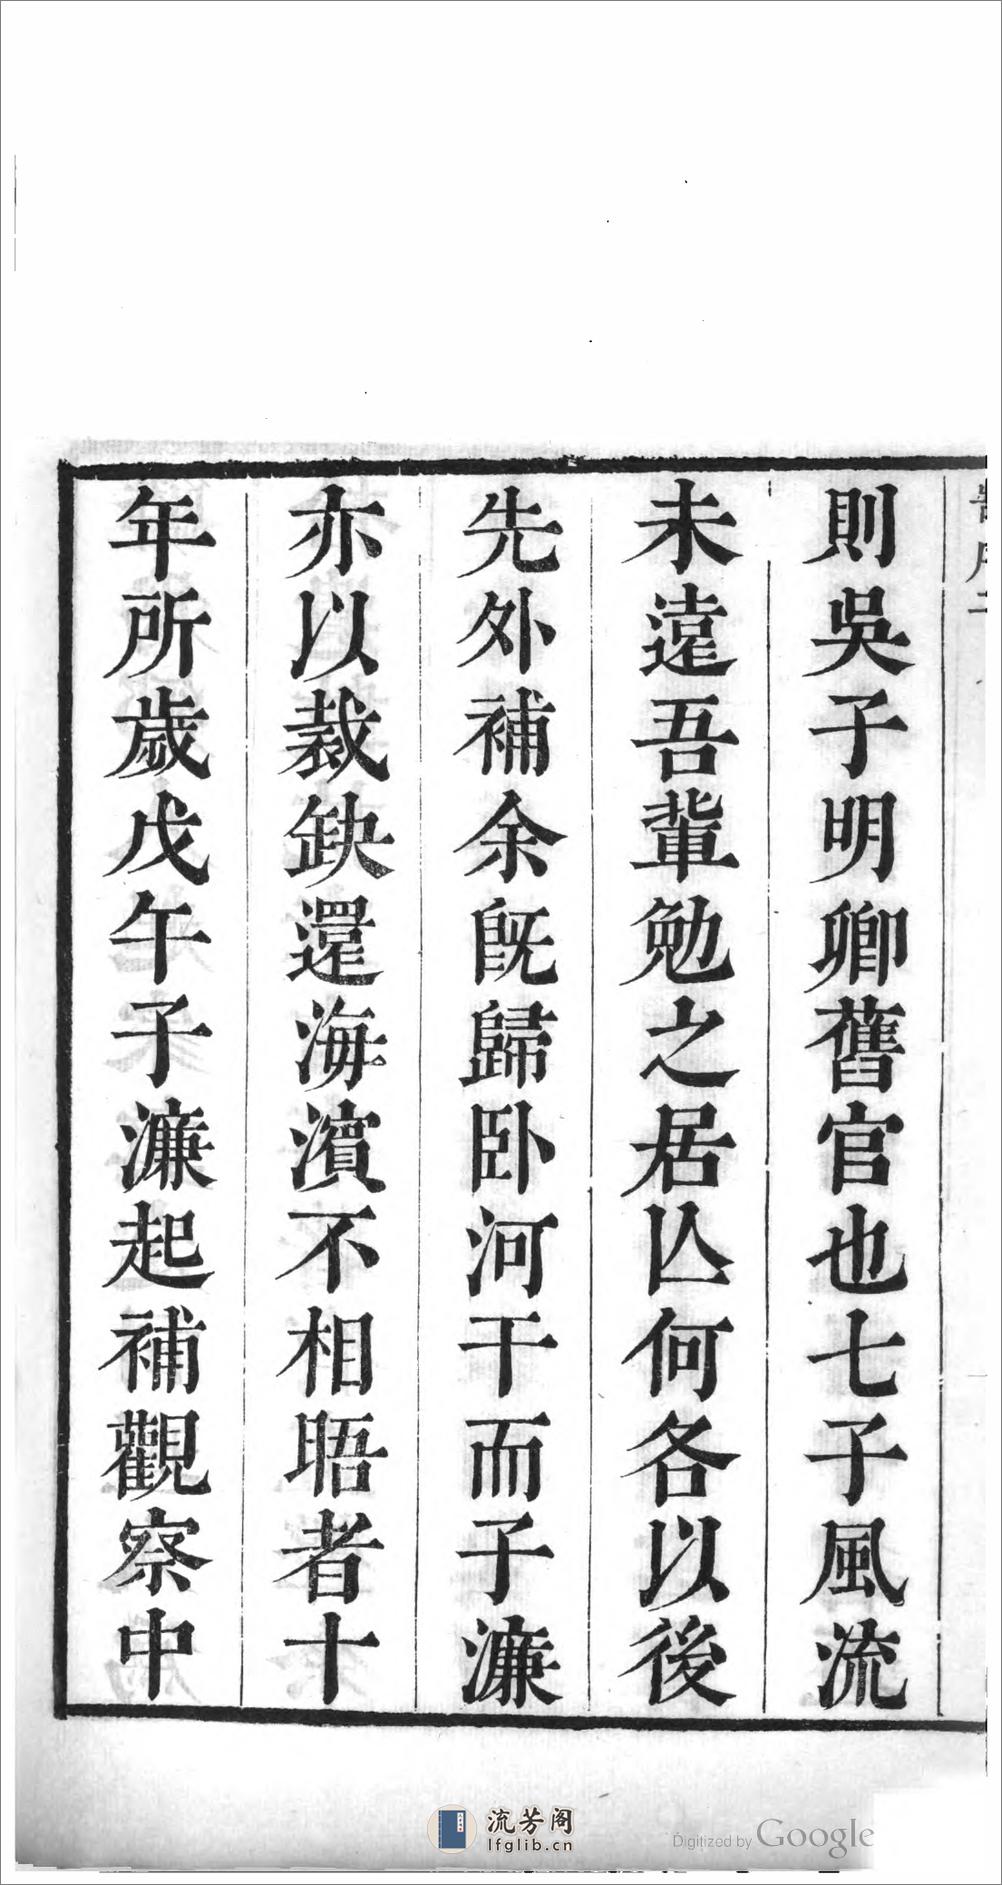 則吳子明卿舊官也七子風流
未遠吾輩勉之居亾何各以後
先外補余旣歸卧河干而子濂
亦以裁缺還海濵不相晤者十
年所歲戊午子濂起補觀察中
流芳阁
lfglib.cn
Digitized by Google